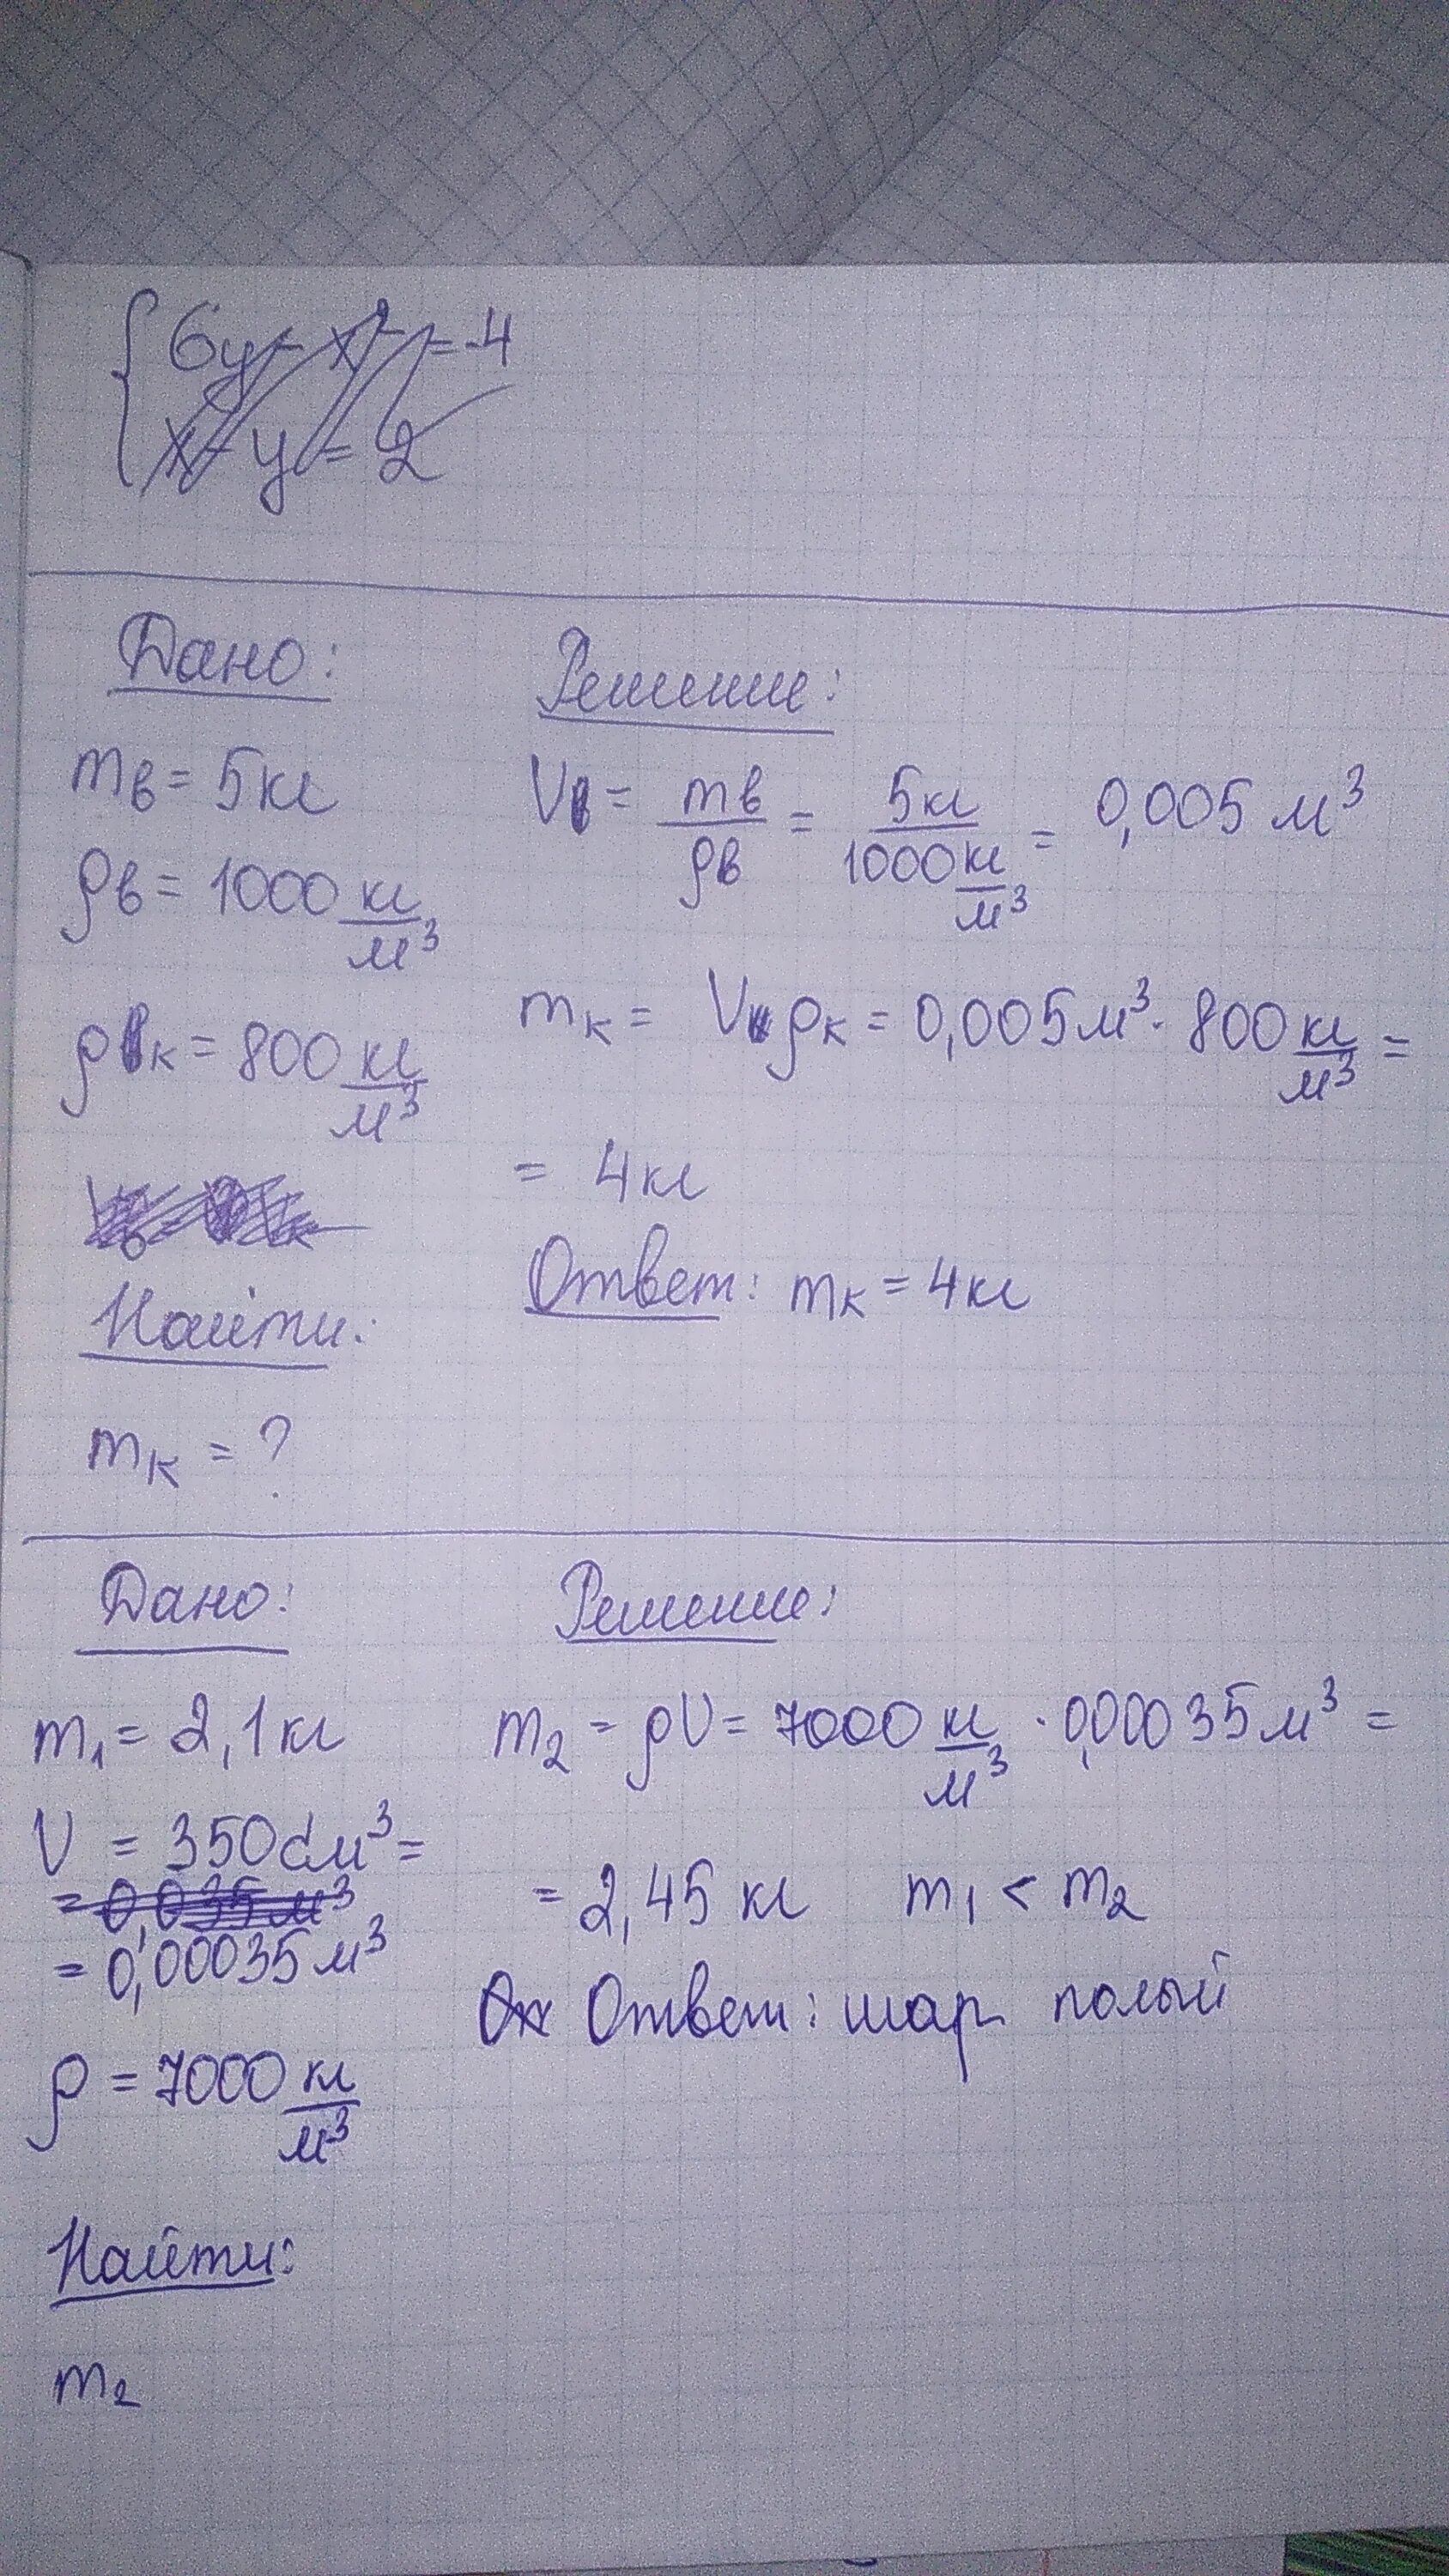 6y - x² = -4
x - y = 2
Дано:
mв = 5кг
ρв = 1000 кг/м³
ρк = 800 кг/м³
Найти:
mк = ?
Решение:
V = mв/ρв = 5кг/1000 кг/м³ = 0,005 м³
mк = Vρк = 0,005м³ · 800 кг/м³ =
= 4кг
Ответ: mк = 4кг
Дано:
m₁ = 2,1кг
V = 350см³ =
= 0,035 м³
= 0,00035м³
ρ = 7000 кг/м³
Найти:
m₂
Решение:
m₂ = ρV = 7000 кг/м³ · 0,00035м³ =
= 2,45 кг m₁ < m₂
Ответ: шар полый